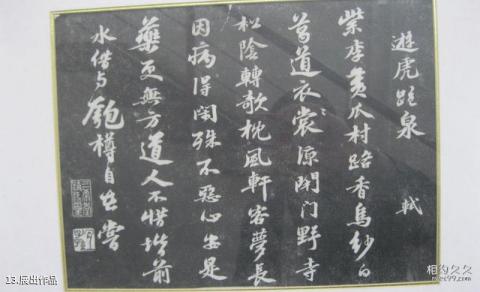 遊虎跑泉 軾
紫李黃瓜村路香烏紗白
葛道衣裳凉閉門野寺
松陰轉欹枕風軒客夢長
因病得閑殊不惡心安是
藥更無方道人不惜堦前
水借与匏樽自在嘗
13.展出作品
相约久久
meet99.com